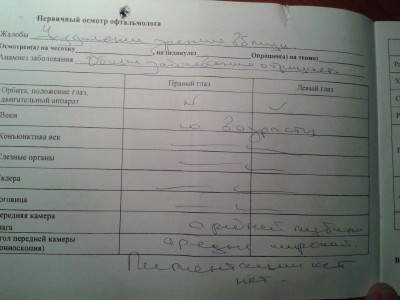 Первичный осмотр офтальмолога
Жалобы зрение вблизи.
Осмотрен(а) на чесотку , на педикулез Опрошен(а) на тениоз
Анамнез заболевания Общие заболевания отрицает.
Правый глаз Левый глаз
Орбита, положение глаз, N
двигательный аппарат
Веки по возрасту
Конъюнктива век
Слезные органы
клера
оговица
ередняя камера средней глубины
лага
гол передней камеры средне широкий.
ониоскопия)
Пигментации нет
нет.